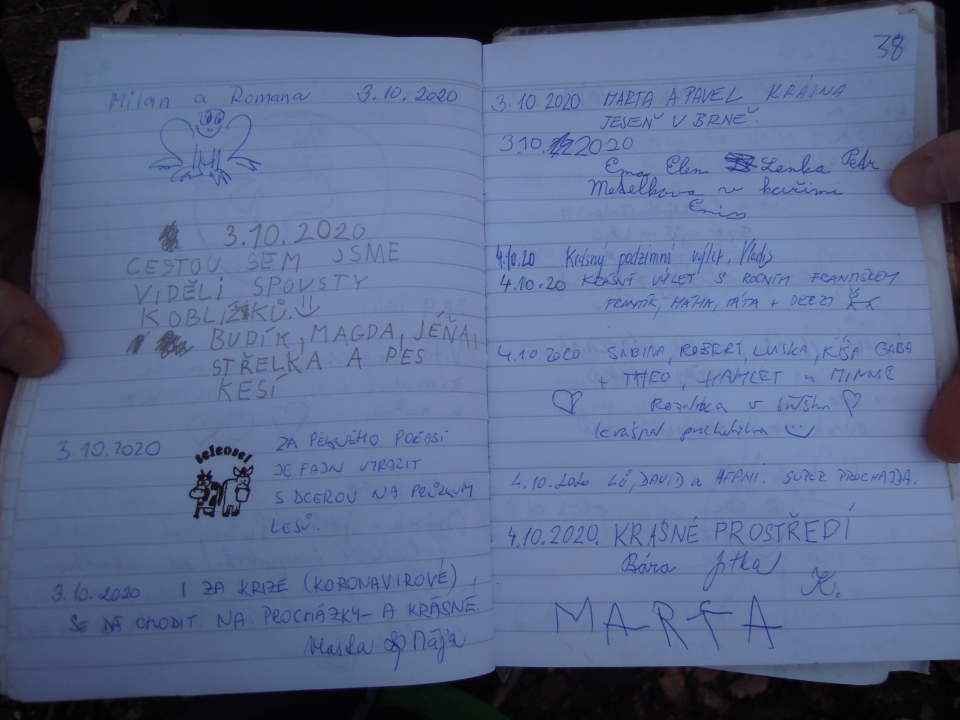 Milan a Romana 3.10.2020
3.10.2020
CESTOU SEM JSME
VIDĚLI SPOUSTY
KOBLÍŽKŮ.
BUDÍK, MAGDA, JÉŇA,
STŘELKA A PES
KESÍ
3.10.2020
teleosel
ZA PĚKNÉHO POČASÍ
JE FAJN VYRAZIT
S DCEROU NA PRŮZKUM
LESŮ.
3.10.2020 I ZA KRIZE (KORONAVIROVÉ),
SE DÁ CHODIT NA PROCHÁZKY - A KRÁSNÉ.
Mája
38
3.10 2020 MARTA A PAVEL KRÁSNA
JESEŇ V BRNĚ.
3.10. 2020
Ema Elen Lenka Petr
4.10.20 Krásný podzimní výlet,
4.10.20 KRÁSNÝ VÝLET S ROČNÍM FRANTIŠKEM
FRANTÍK, MÁMA, TÁTA +
4.10 2020 SABINA, ROBERT, LUSKA, KÍŠA GÁBA
+ THEO, HAMLET a MINNIE
v bříšku
4.10.2020 LÚ, DAVID a SUPER PROCHÁZKA.
4.10.2020. KRÁSNÉ PROSTŘEDÍ
Bára Jitka
K.
MARTA